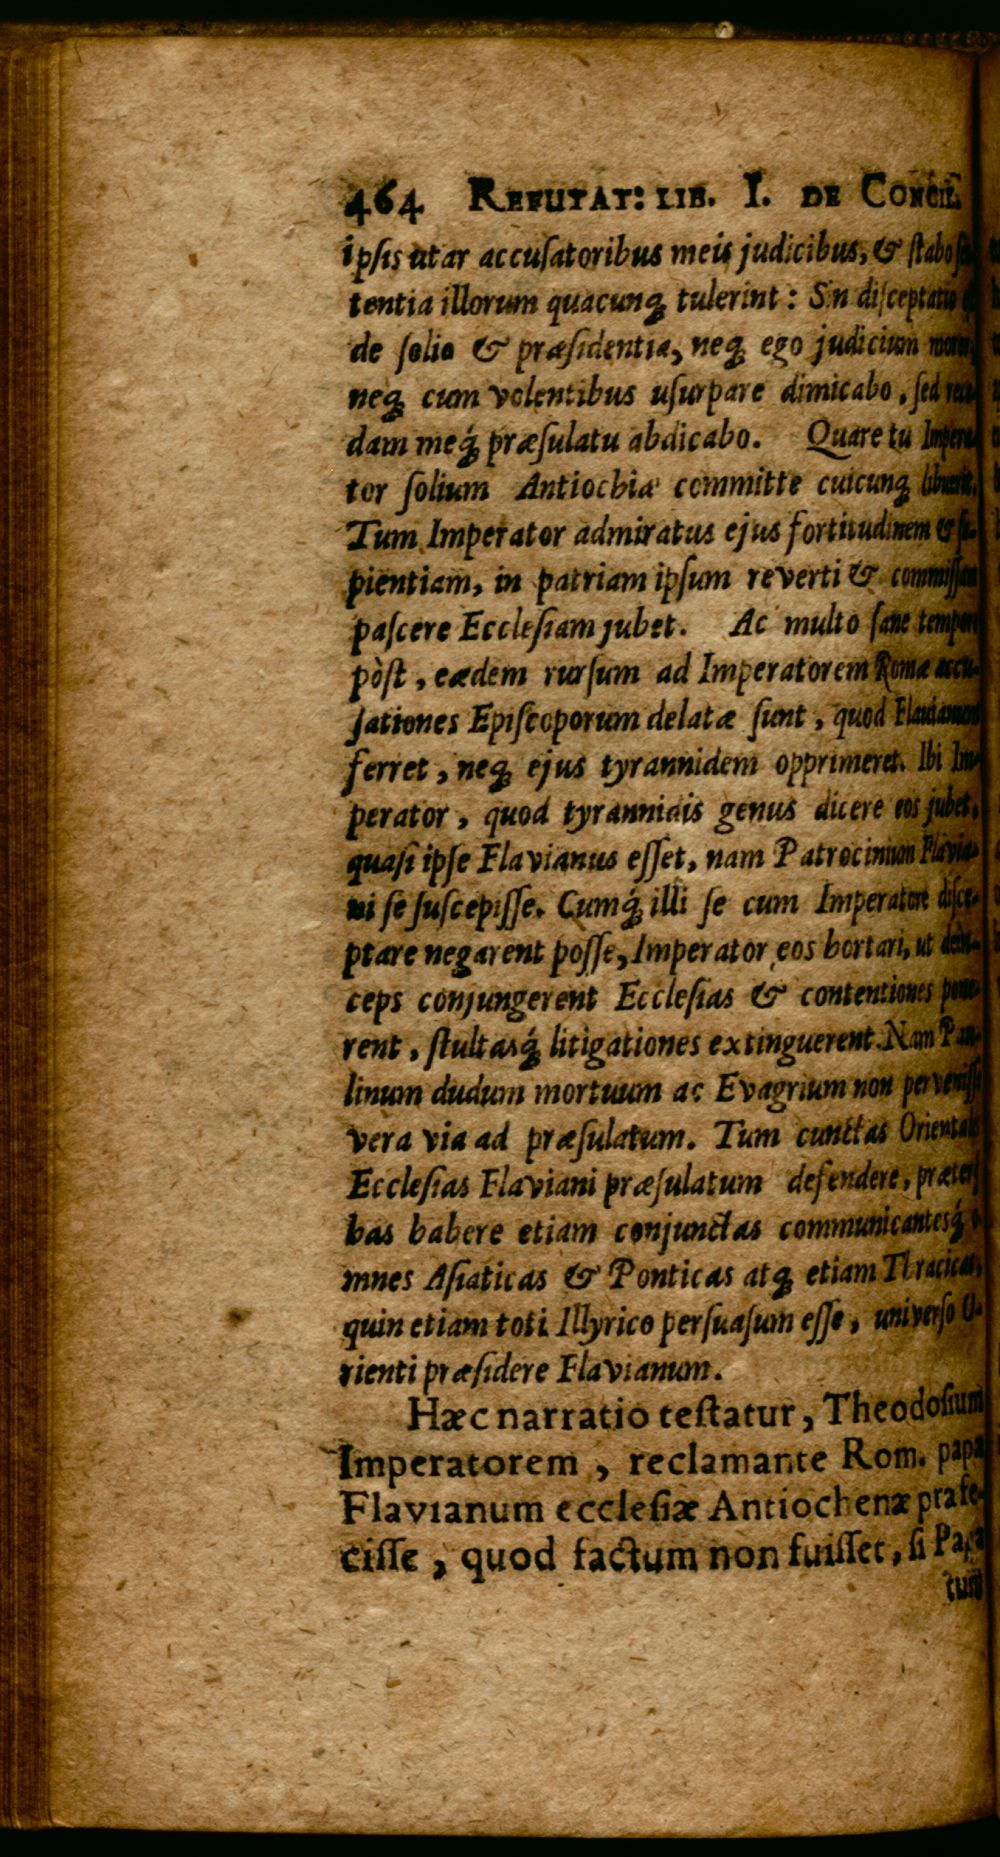 464 REFUTAT: LIB. I. DE CONCIL.
ipsis utar accusatoribus meis judicibus, & stabo sen-
tentia illorum quacunq; tulerint: Sin disceptatio
de solio & præsidentia, neq; ego judicium moror,
neq; cum volentibus usurpare dimicabo, sed rece-
dam meq́; præsulatu abdicabo. Quare tu Impera-
tor solium Antiochiæ committe cuicunq; libuerit.
Tum Imperator admiratus ejus fortitudinem & sa-
pientiam, in patriam ipsum reverti & commissam
pascere Ecclesiam jubet. Ac multo sane tempore
pòst, eædem rursum ad Imperatorem Romæ accu-
sationes Episcoporum delatæ sunt, quod Flavianum
ferret, neq; ejus tyrannidem opprimeret. Ibi Im-
perator, quod tyrannidis genus dicere eos jubet,
quasi ipse Flavianus esset, nam Patrocinium Flavia-
ni se suscepisse. Cumq́; illi se cum Imperatore disce-
ptare negarent posse, Imperator eos hortari, ut dein-
ceps conjungerent Ecclesias & contentiones pone-
rent, stultasq́; litigationes extinguerent. Nam Pau-
linum dudum mortuum ac Evagrium non pervenisse
vera via ad præsulatum. Tum cunctas Orientales
Ecclesias Flaviani præsulatum defendere, præter
has habere etiam conjunctas communicantesq́; o-
mnes Asiaticas & Ponticas atq; etiam Thracicas,
quin etiam toti Illyrico persuasum esse, universo O-
rienti præsidere Flavianum.
Hæc narratio testatur, Theodosium
Imperatorem, reclamante Rom. papa
Flavianum ecclesiæ Antiochenæ præfe-
cisse, quod factum non fuisset, si Papa
tum